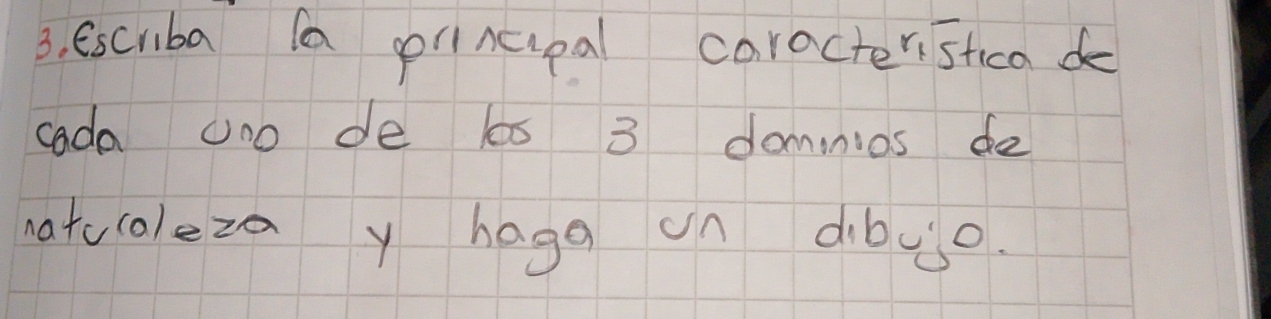 3. Escriba la principal característica de
cada uno de los 3 dominios de
naturaleza y haga un dibujo.